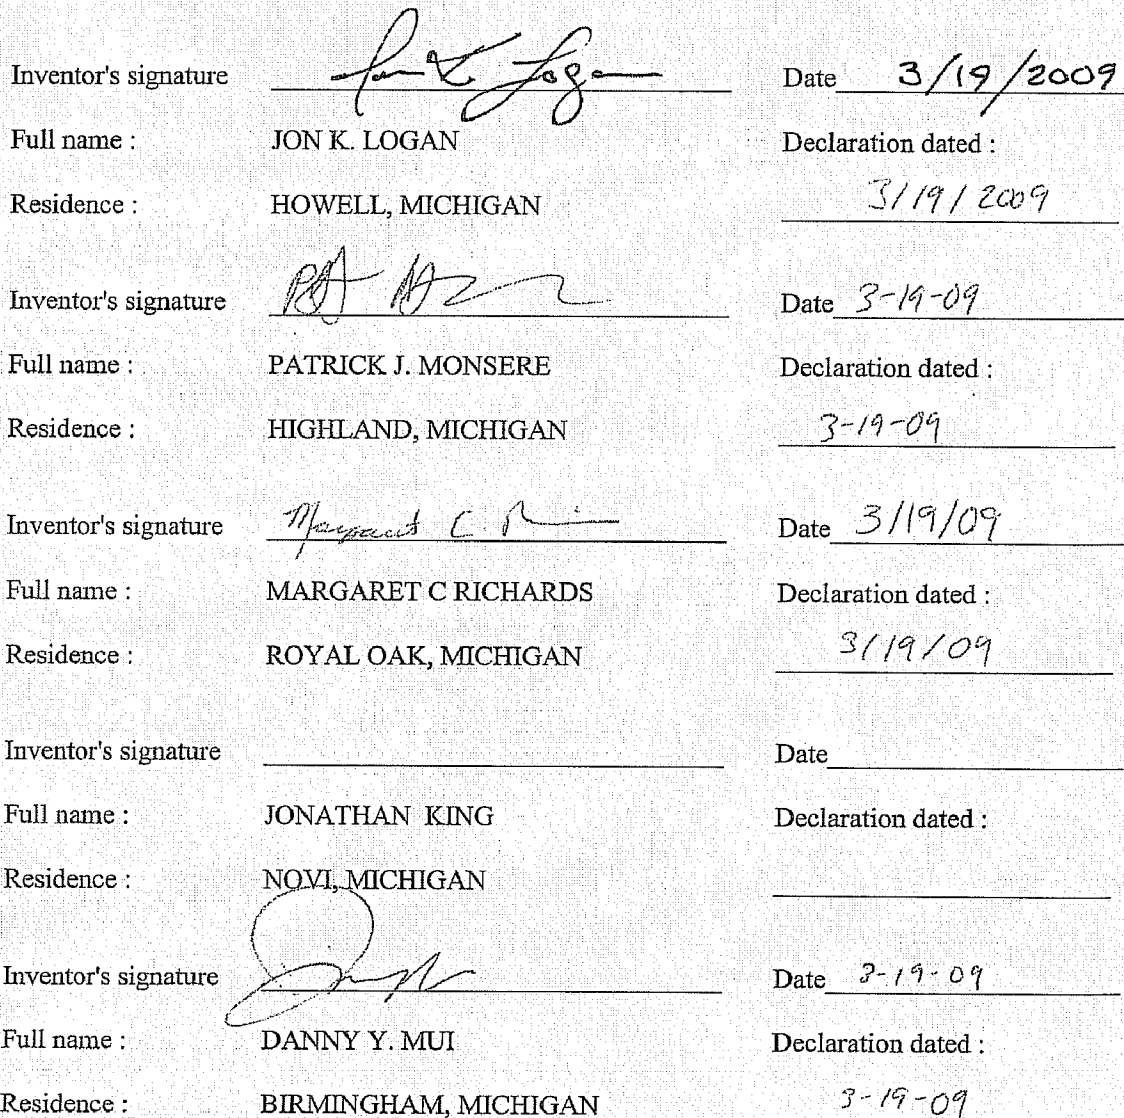 Inventor's signature Jon K Logan Date 3/19/2009
Full name : JON K. LOGAN Declaration dated :
Residence : HOWELL, MICHIGAN 3/19/2009
Inventor's signature Date 3-19-09
Full name : PATRICK J. MONSERE Declaration dated :
Residence : HIGHLAND, MICHIGAN 3-19-09
Inventor's signature Margaret C Date 3/19/09
Full name : MARGARET C RICHARDS Declaration dated :
Residence : ROYAL OAK, MICHIGAN 3/19/09
Inventor's signature Date
Full name : JONATHAN KING Declaration dated :
Residence : NOVI, MICHIGAN
Inventor's signature Date 3-19-09
Full name : DANNY Y. MUI Declaration dated :
Residence : BIRMINGHAM, MICHIGAN 3-19-09